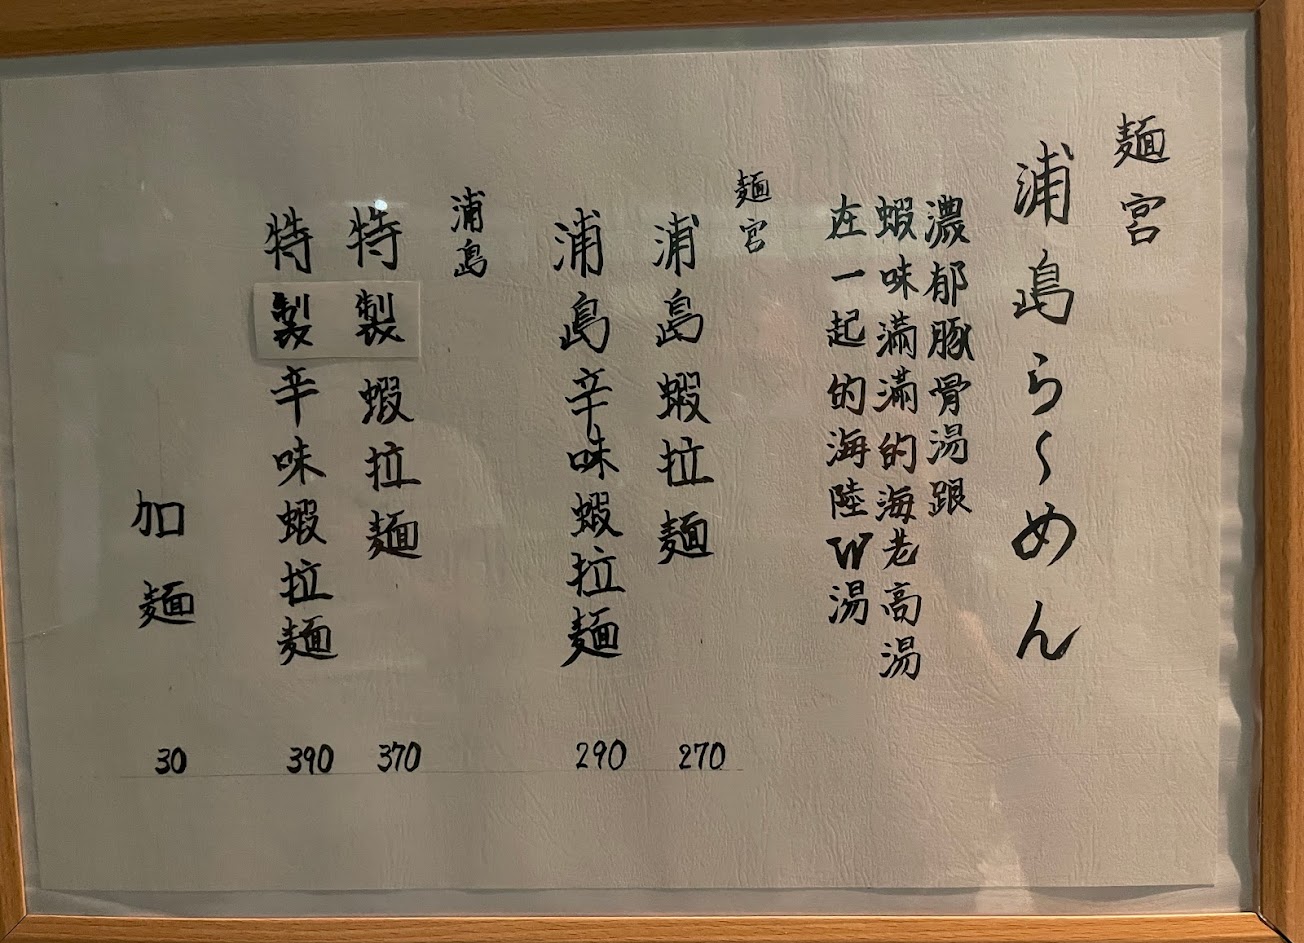 麺宮
浦島ら〜めん
濃郁豚骨湯跟
蝦味滿滿的海老高湯
在一起的海陸W湯
麺宮
浦島蝦拉麺 270
浦島辛味蝦拉麺 290
浦島
特製蝦拉麺 370
特製辛味蝦拉麺 390
加麺 30